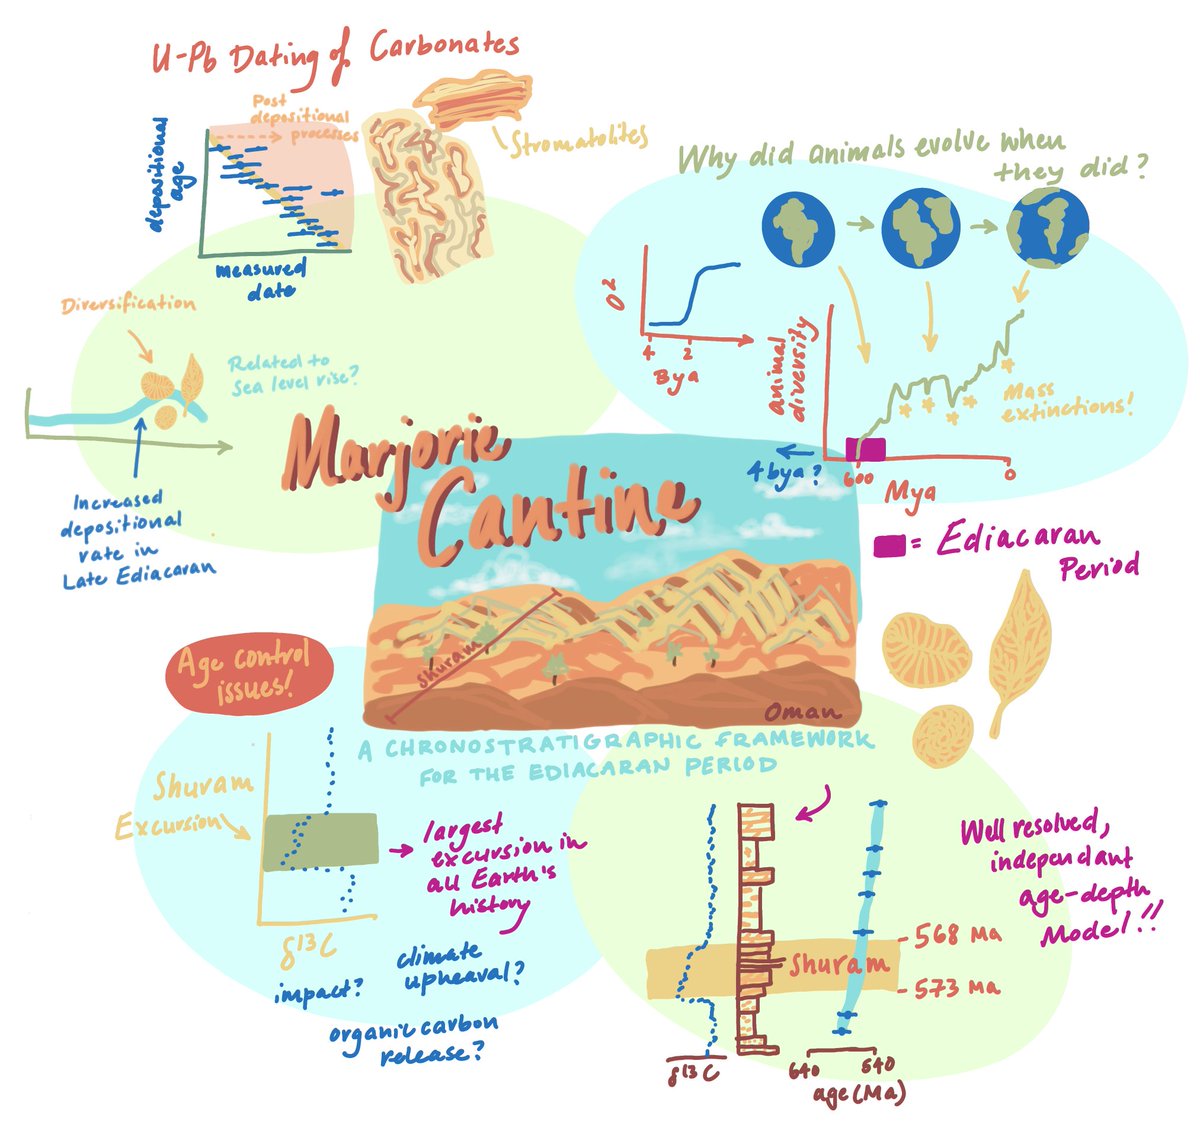 U-Pb Dating of Carbonates
Post
depositional
processes
depositional
age
measured
date
Stromatolites
Why did animals evolve when
they did?
O2
4 2
Bya
animal
diversity
Mass
extinctions!
4bya?
600 0
Mya
= Ediacaran
Period
Diversification
Related to
Sea level rise?
Increased
depositional
rate in
Late Ediacaran
Marjorie
Cantine
Shuram
Oman
A CHRONOSTRATIGRAPHIC FRAMEWORK
FOR THE EDIACARAN PERIOD
Age control
issues!
Shuram
Excursion
largest
excursion in
all Earth's
history
δ13C
impact?
climate
upheaval?
organic carbon
release?
Well resolved,
independant
age-depth
Model!!
Shuram
568 Ma
573 Ma
δ13C
640 540
age (Ma)